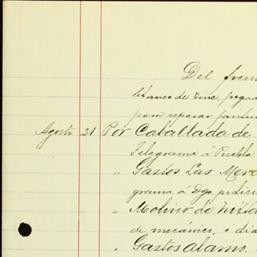 Del
blanco de Zinc, 
para reparar
Agosto 31 Por Caballada de
Telegrama á Puebla
" Gastos Las Merc
grama á Dgo.
" Molino de Nixta
de mecánico, 
" Gastos alamo.